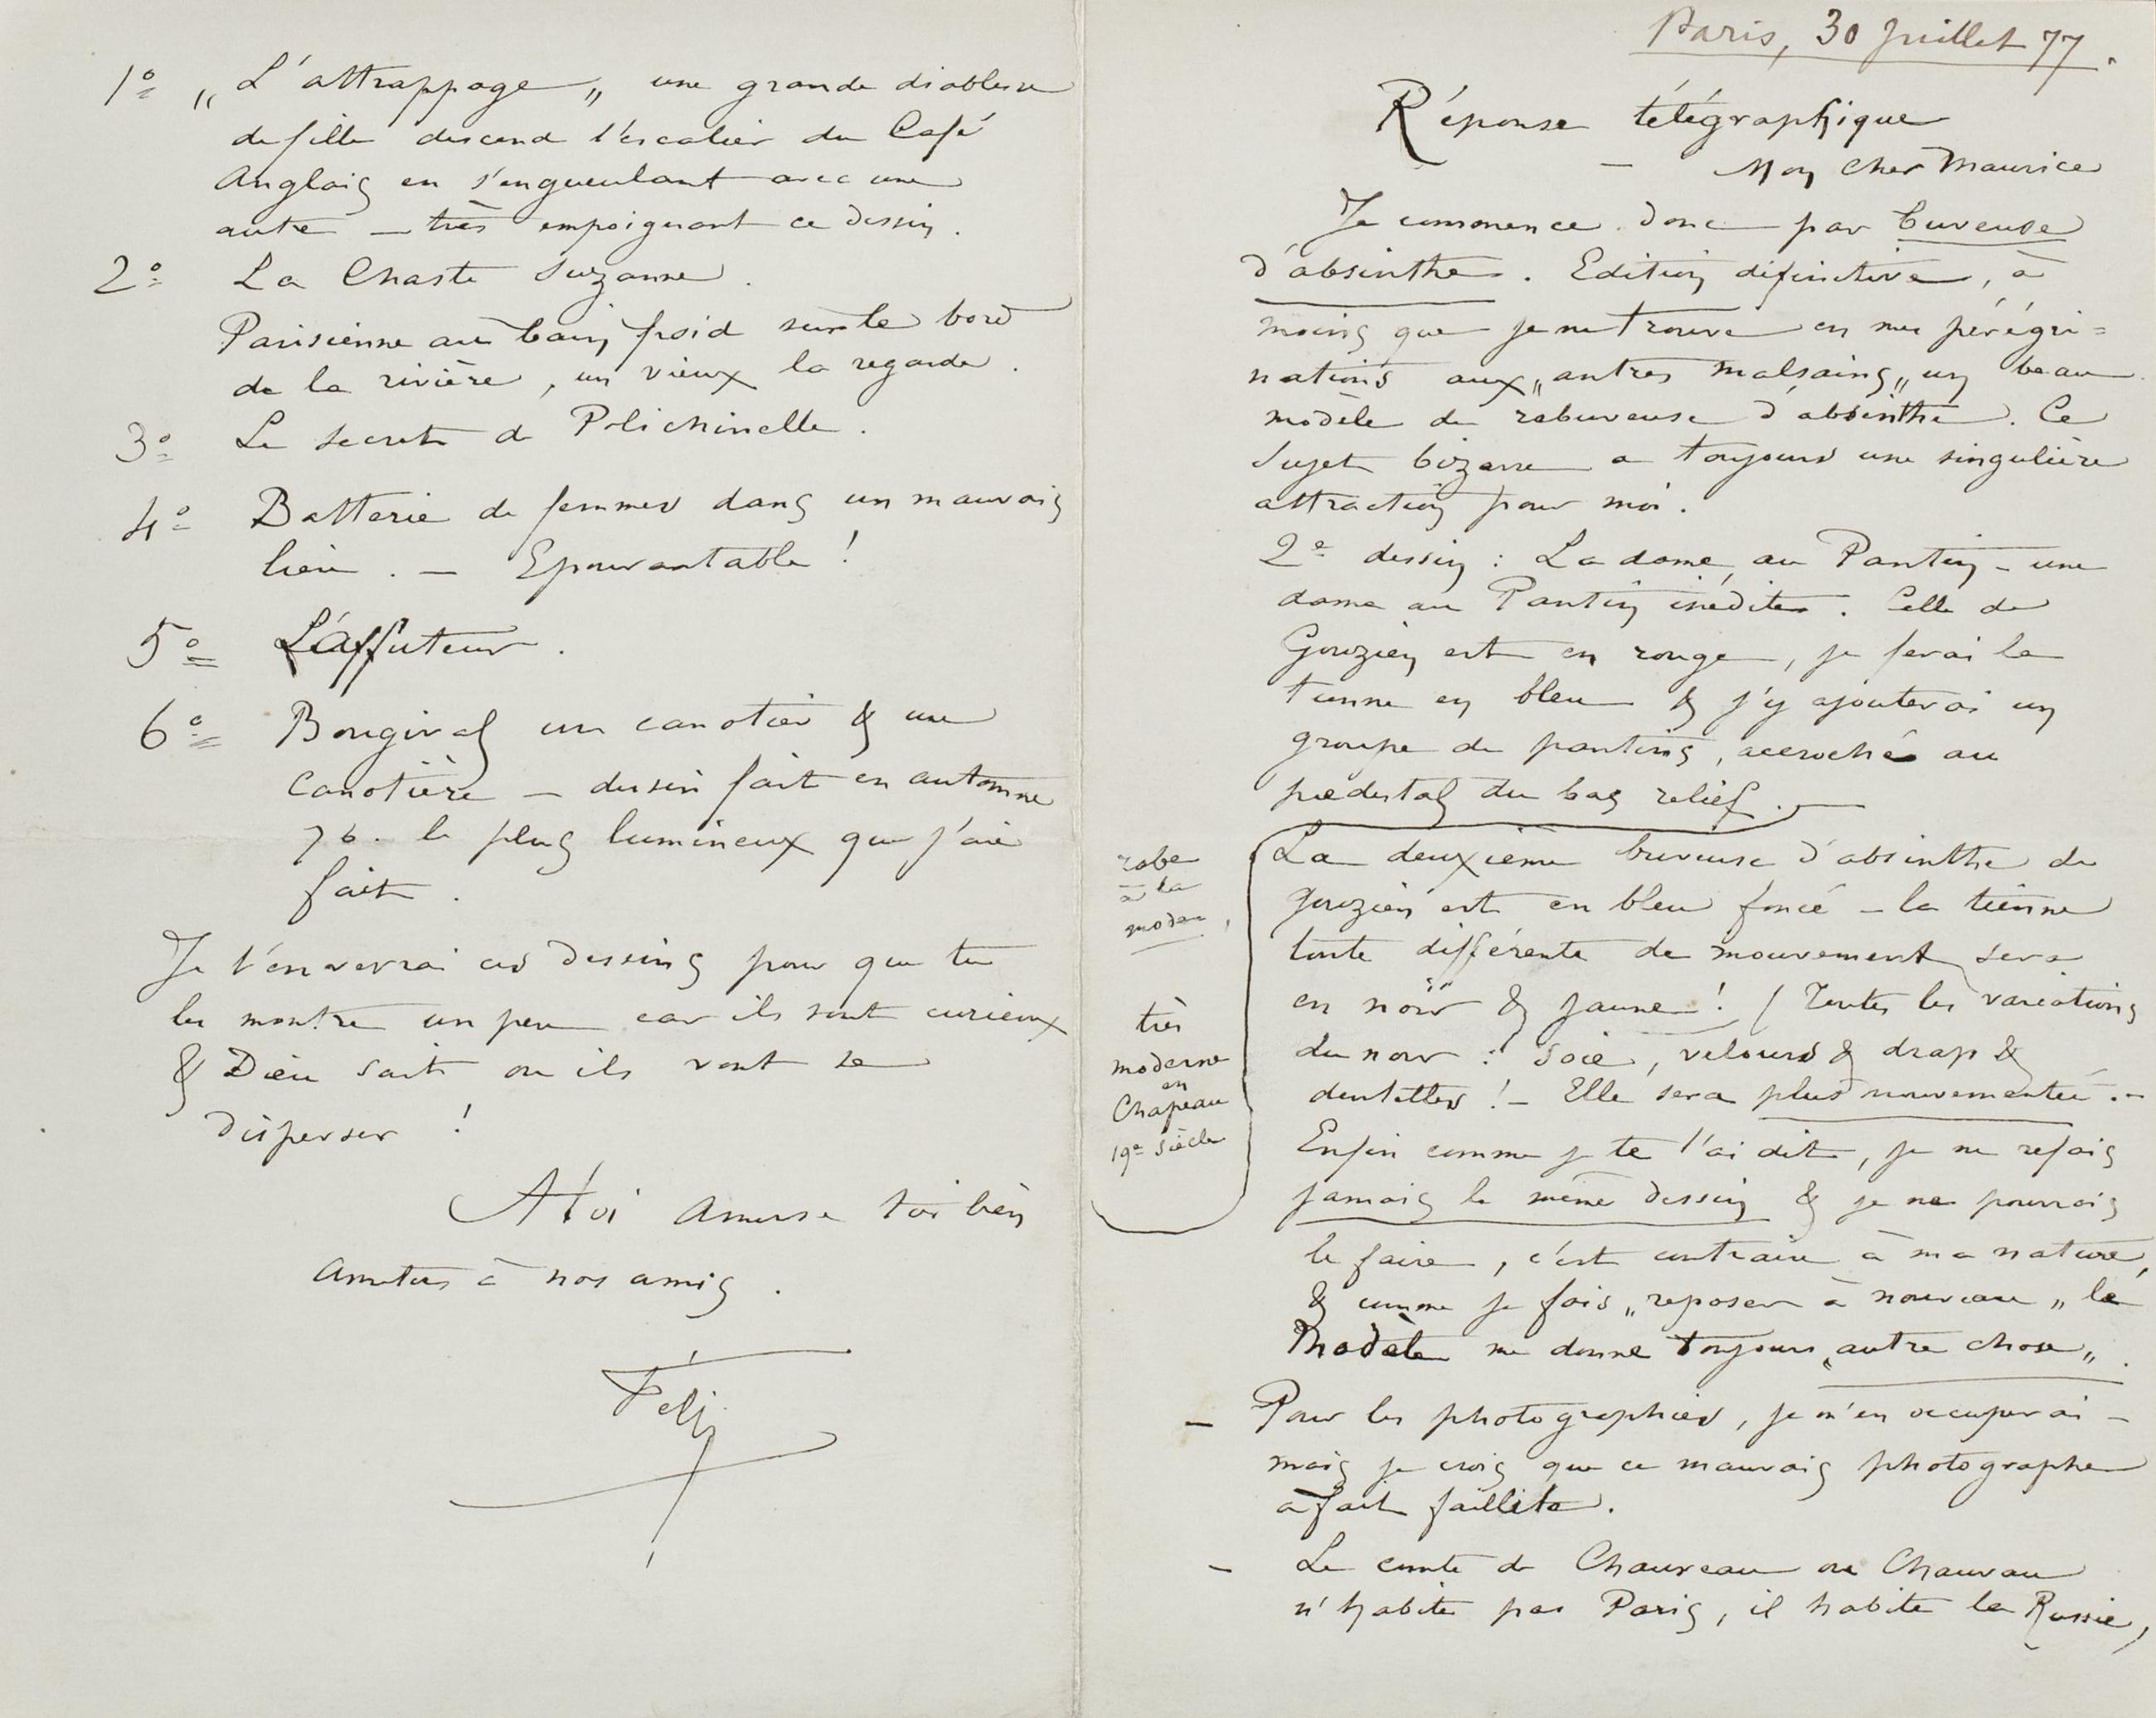 Paris, 30 Juillet 77.
Réponse télégraphique
— Mon Cher Maurice
Je commence donc par buveuse
d'absinthe. Edition définitive, à
moins que je ne trouve en mes pérégri=
nations aux „antres malsains„ un beau
modèle de rebuveuse d'absinthe. Ce
sujet bizarre a toujours une singulière
attraction pour moi.
2e dessin : La dame au Pantin – une
dame au Pantin inédite. Celle de
Gouzien est en rouge, je ferai la
tienne en bleu & j'y ajouterai un
groupe de pantins, accrochés au
piedestal du bas relief. —
La deuxième buveuse d'absinthe de
Gouzien est en bleu foncé – la tienne
toute différente de mouvement sera
en noir & jaune ! / Toutes les variations
du noir : soie, velours & drap &
dentelles ! – Elle sera plus mouvementée. –
Enfin comme je te l'ai dit, je ne refais
jamais le même dessin & je ne pourrais
le faire, c'est contraire à ma nature,
& comme je fais „reposer à nouveau„ le
modèle me donne toujours „autre chose„.
— Pour les photographies, je m'en occuperai –
mais je crois que ce mauvais photographe
a fait faillite.
– Le comte de Chauveau ou Chauvau
n'habite pas Paris, il habite la Russie,
robe
à la
mode,
très
moderne
en
Chapeau
19e siècle
1o „L'attrappage„ une grande diablesse
de fille descend l'escalier du Café
Anglais en s'engueulant avec une
autre — très empoignant ce dessin.
2o La Chaste Suzanne.
Parisienne au bain froid sur le bord
de la rivière, un vieux la regarde.
3o Le secret de Polichinelle.
4o Batterie de femmes dans un mauvais
lieu. — Epouvantable !
5o L'Affuteur.
6o Bougival un canotier & une
Canotière — dessin fait en automne
76. le plus lumineux que j'aie
fait.
Je t'enverrai ces dessins pour que tu
les montre un peu car ils sont curieux
& Dieu sait ou ils vont se
disperser !
A toi Amuse toi bien
Amitiés à nos amis.
Fély